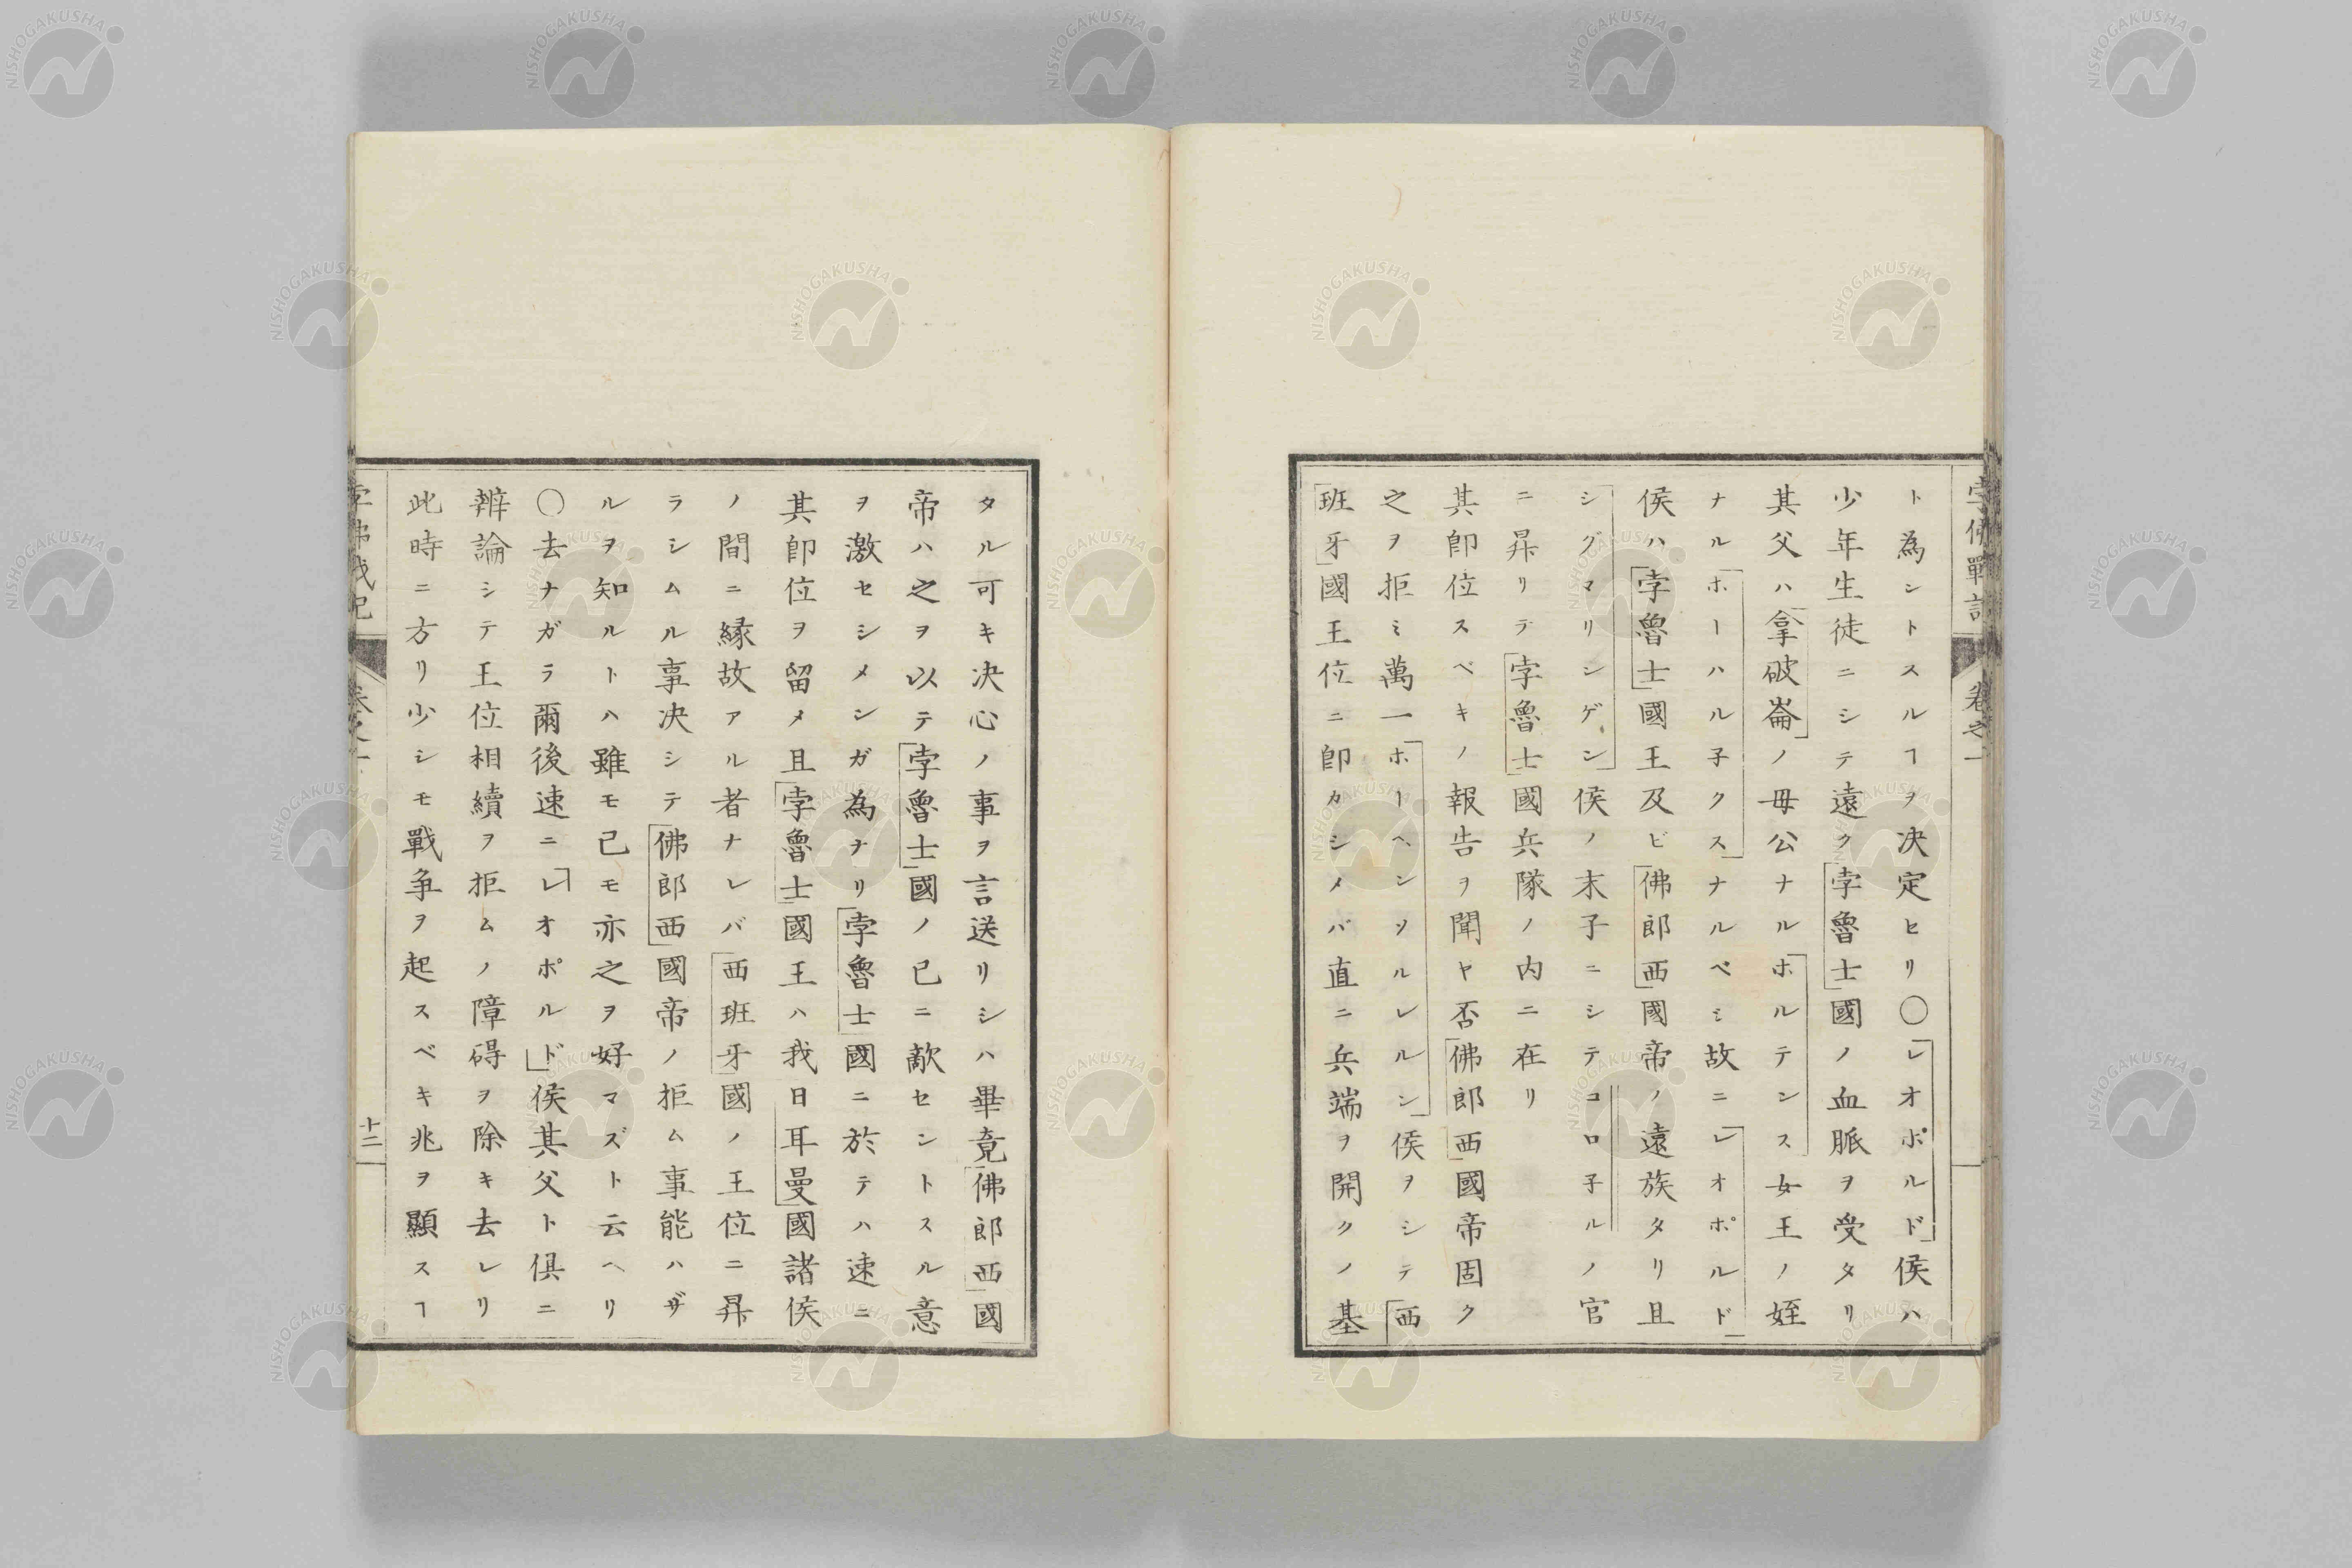 孛佛戰記 卷之一
ト為シトスルヿヲ决定セリ〇「レオポルド」侯ハ
少年生徒ニシテ遠ク「孛魯士」國ノ血脈ヲ受タリ
其父ハ「拿破崙」ノ母公ナル「ホルテンス」女王ノ姪
ナル「ホーハル子クス」ナルベシ故ニ「レオポルド」
侯ハ「孛魯士」國王及ビ「佛郎西」國帝ノ遠族タリ且
「シグマリンゲン」侯ノ末子ニシテコロ子ルノ官
ニ昇リテ「孛魯士」國兵隊ノ内ニ在リ
其即位スベキノ報告ヲ聞ヤ否「佛郎西」國帝固ク
之ヲ拒ミ萬一「ホーヘンソルレルン」侯ヲシテ「西
班牙」國王位ニ即カシメバ直ニ兵端ヲ開クノ基
タル可キ决心ノ事ヲ言送リシハ畢竟「佛郎西」國
帝ハ之ヲ以テ「孛魯士」國ノ已ニ敵セントスル意
ヲ激セシメンガ為ナリ「孛魯士」國ニ於テハ速ニ
其即位ヲ留メ且「孛魯士」國王ハ我「日耳曼」國諸侯
ノ間ニ縁故アル者ナレバ「西班牙」國ノ王位ニ昇
ラシムル事决シテ「佛郎西」國帝ノ拒ム事能ハザ
ルヲ知ルトハ雖モ己モ亦之ヲ好マズト云ヘリ
〇去ナガラ爾後速ニ「レオポルド」侯其父ト俱ニ
辨論シテ王位相續ヲ拒ムノ障碍ヲ除キ去レリ
此時ニ方リ少シモ戰争ヲ起スベキ兆ヲ顯スヿ
孛佛戰記 卷之一 十二